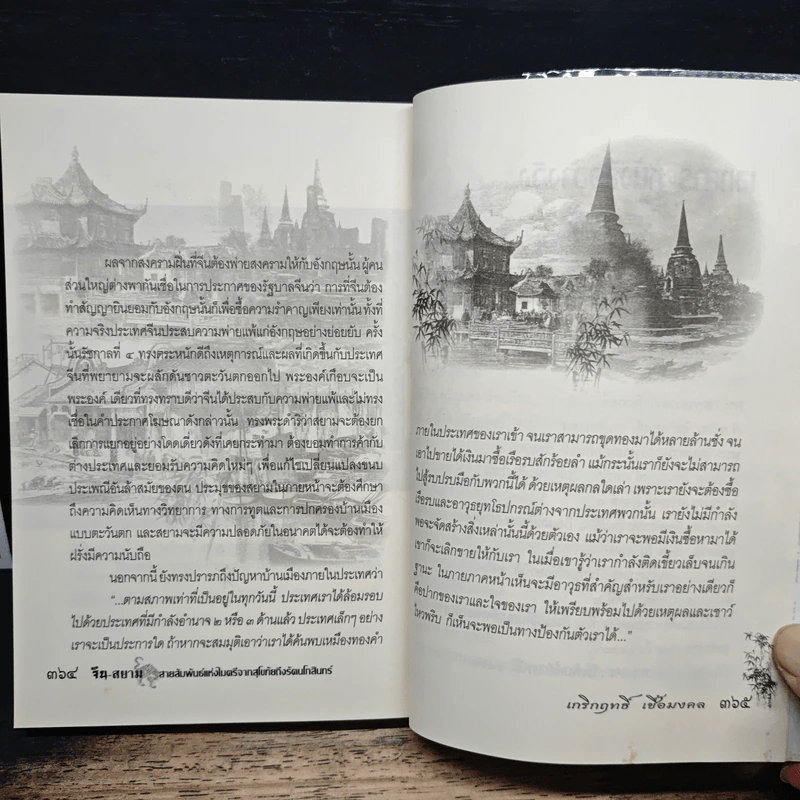 ผลจากสงครามฝิ่นที่จีนต้องพ่ายสงครามให้กับอังกฤษนั้น ผู้คน
ส่วนใหญ่ต่างพากันเชื่อในการประกาศของรัฐบาลจีนว่า การที่จีนต้อง
ทำสัญญายินยอมกับอังกฤษนั้นก็เพื่อซื้อความรำคาญเพียงเท่านั้น ทั้งที่
ความจริงประเทศจีนประสบความพ่ายแพ้แก่อังกฤษอย่างย่อยยับ ครั้ง
นั้นรัชกาลที่ ๔ ทรงตระหนักดีถึงเหตุการณ์และผลที่เกิดขึ้นกับประเทศ
จีนที่พยายามจะผลักดันชาวตะวันตกออกไป พระองค์เกือบจะเป็น
พระองค์ เดียวที่ทรงทราบดีว่าจีนได้ประสบกับความพ่ายแพ้และไม่ทรง
เชื่อในคำประกาศโฆษณาดังกล่าวนั้น ทรงพระดำริว่าสยามจะต้องยก
เลิกการแยกอยู่อย่างโดดเดี่ยวดังที่เคยกระทำมา ต้องยอมทำการค้ากับ
ต่างประเทศและยอมรับความคิดใหม่ๆ เพื่อแก้ไขเปลี่ยนแปลงขนบ
ประเพณีอันล้าสมัยของตน ประมุขของสยามในภายหน้าจะต้องศึกษา
ถึงความคิดเห็นทางวิทยาการ ทางการทูตและการปกครองบ้านเมือง
แบบตะวันตก และสยามจะมีความปลอดภัยในอนาคตได้จะต้องทำให้
ฝรั่งมีความนับถือ
นอกจากนี้ ยังทรงปรารภถึงปัญหาบ้านเมืองภายในประเทศว่า
"...ตามสภาพเท่าที่เป็นอยู่ในทุกวันนี้ ประเทศเราได้ล้อมรอบ
ไปด้วยประเทศที่มีกำลังอำนาจ ๒ หรือ ๓ ด้านแล้ว ประเทศเล็กๆ อย่าง
เราจะเป็นประการใด ถ้าหากจะสมมุติเอาว่าเราได้ค้นพบเหมืองทองคำ
๓๖๔ จีน-สยาม สายสัมพันธ์แห่งไมตรีจากสุโขทัยถึงรัตนโกสินทร์
ภายในประเทศของเราเข้า จนเราสามารถขุดทองมาได้หลายล้านชั่ง จน
เอาไปขายได้เงินมาซื้อเรือรบสักร้อยลำ แม้กระนั้นเราก็ยังจะไม่สามารถ
ไปสู้รบปรบมือกับพวกนี้ได้ ด้วยเหตุผลกลใดเล่า เพราะเรายังจะต้องซื้อ
เรือรบและอาวุธยุทโธปกรณ์ต่างจากประเทศพวกนั้น เรายังไม่มีกำลัง
พอจะจัดสร้างสิ่งเหล่านั้นนี้ด้วยตัวเอง แม้ว่าเราจะพอมีเงินซื้อหามาได้
เขาก็จะเลิกขายให้กับเรา ในเมื่อเขารู้ว่าเรากำลังติดเขี้ยวเล็บจนเกิน
ฐานะ ในภายภาคหน้าเห็นจะมีอาวุธที่สำคัญสำหรับเราอย่างเดียวก็
คือปากของเราและใจของเรา ให้เพรียบพร้อมไปด้วยเหตุผลและเชาว์
ไหวพริบ ก็เห็นจะพอเป็นทางป้องกันตัวเราได้..."
เกริกฤทธิ์ เชื้อมงคล ๓๖๕